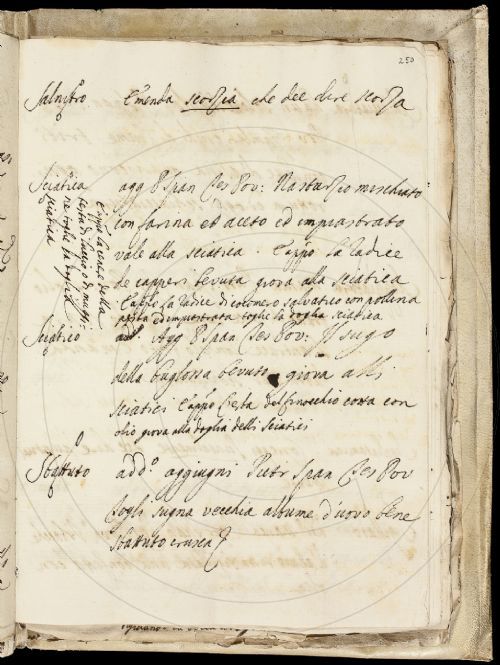 250
Salnistro Emenda scorzia che dee dire scorza
Sciatica agg P Span Tes Pov: Nasturzio mischiato
con farina et aceto ed impiastrato
vale alla sciatica. E appo La radice
de capperi bevuta giova alla sciatica
E appo La radice di cocomero salvatico con pollina
pesta ed impiastrata toglie la doglia sciatica
E appo la cenere della
testa di
ne toglie la doglia
sciatica
Sciatico add. Agg P Span Tes Pov: Il sugo
della buglossa bevuto giova alli
sciatici E appo Pesta del finocchio cotta con
olio giova alla doglia delli sciatici
Sbattuto add.o aggiugni Pietr Span Tes Pov
togli sugna vecchia albume d'uovo bene
sbattuto crusca